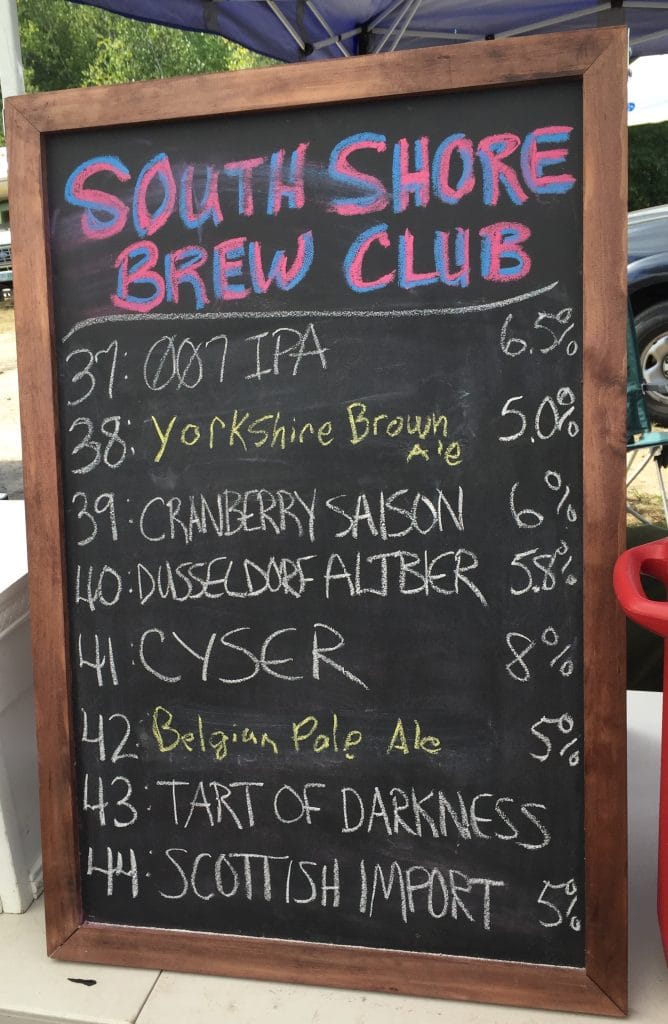 SOUTH SHORE
BREW CLUB
37: 007 IPA 6.5%
38: Yorkshire Brown 5.0%
Ale
39: CRANBERRY SAISON 6%
40: DUSSELDORF ALTBIER 5.8%
41: CYSER 8%
42: Belgian Pale Ale 5%
43: TART OF DARKNESS
44: SCOTTISH IMPORT 5%